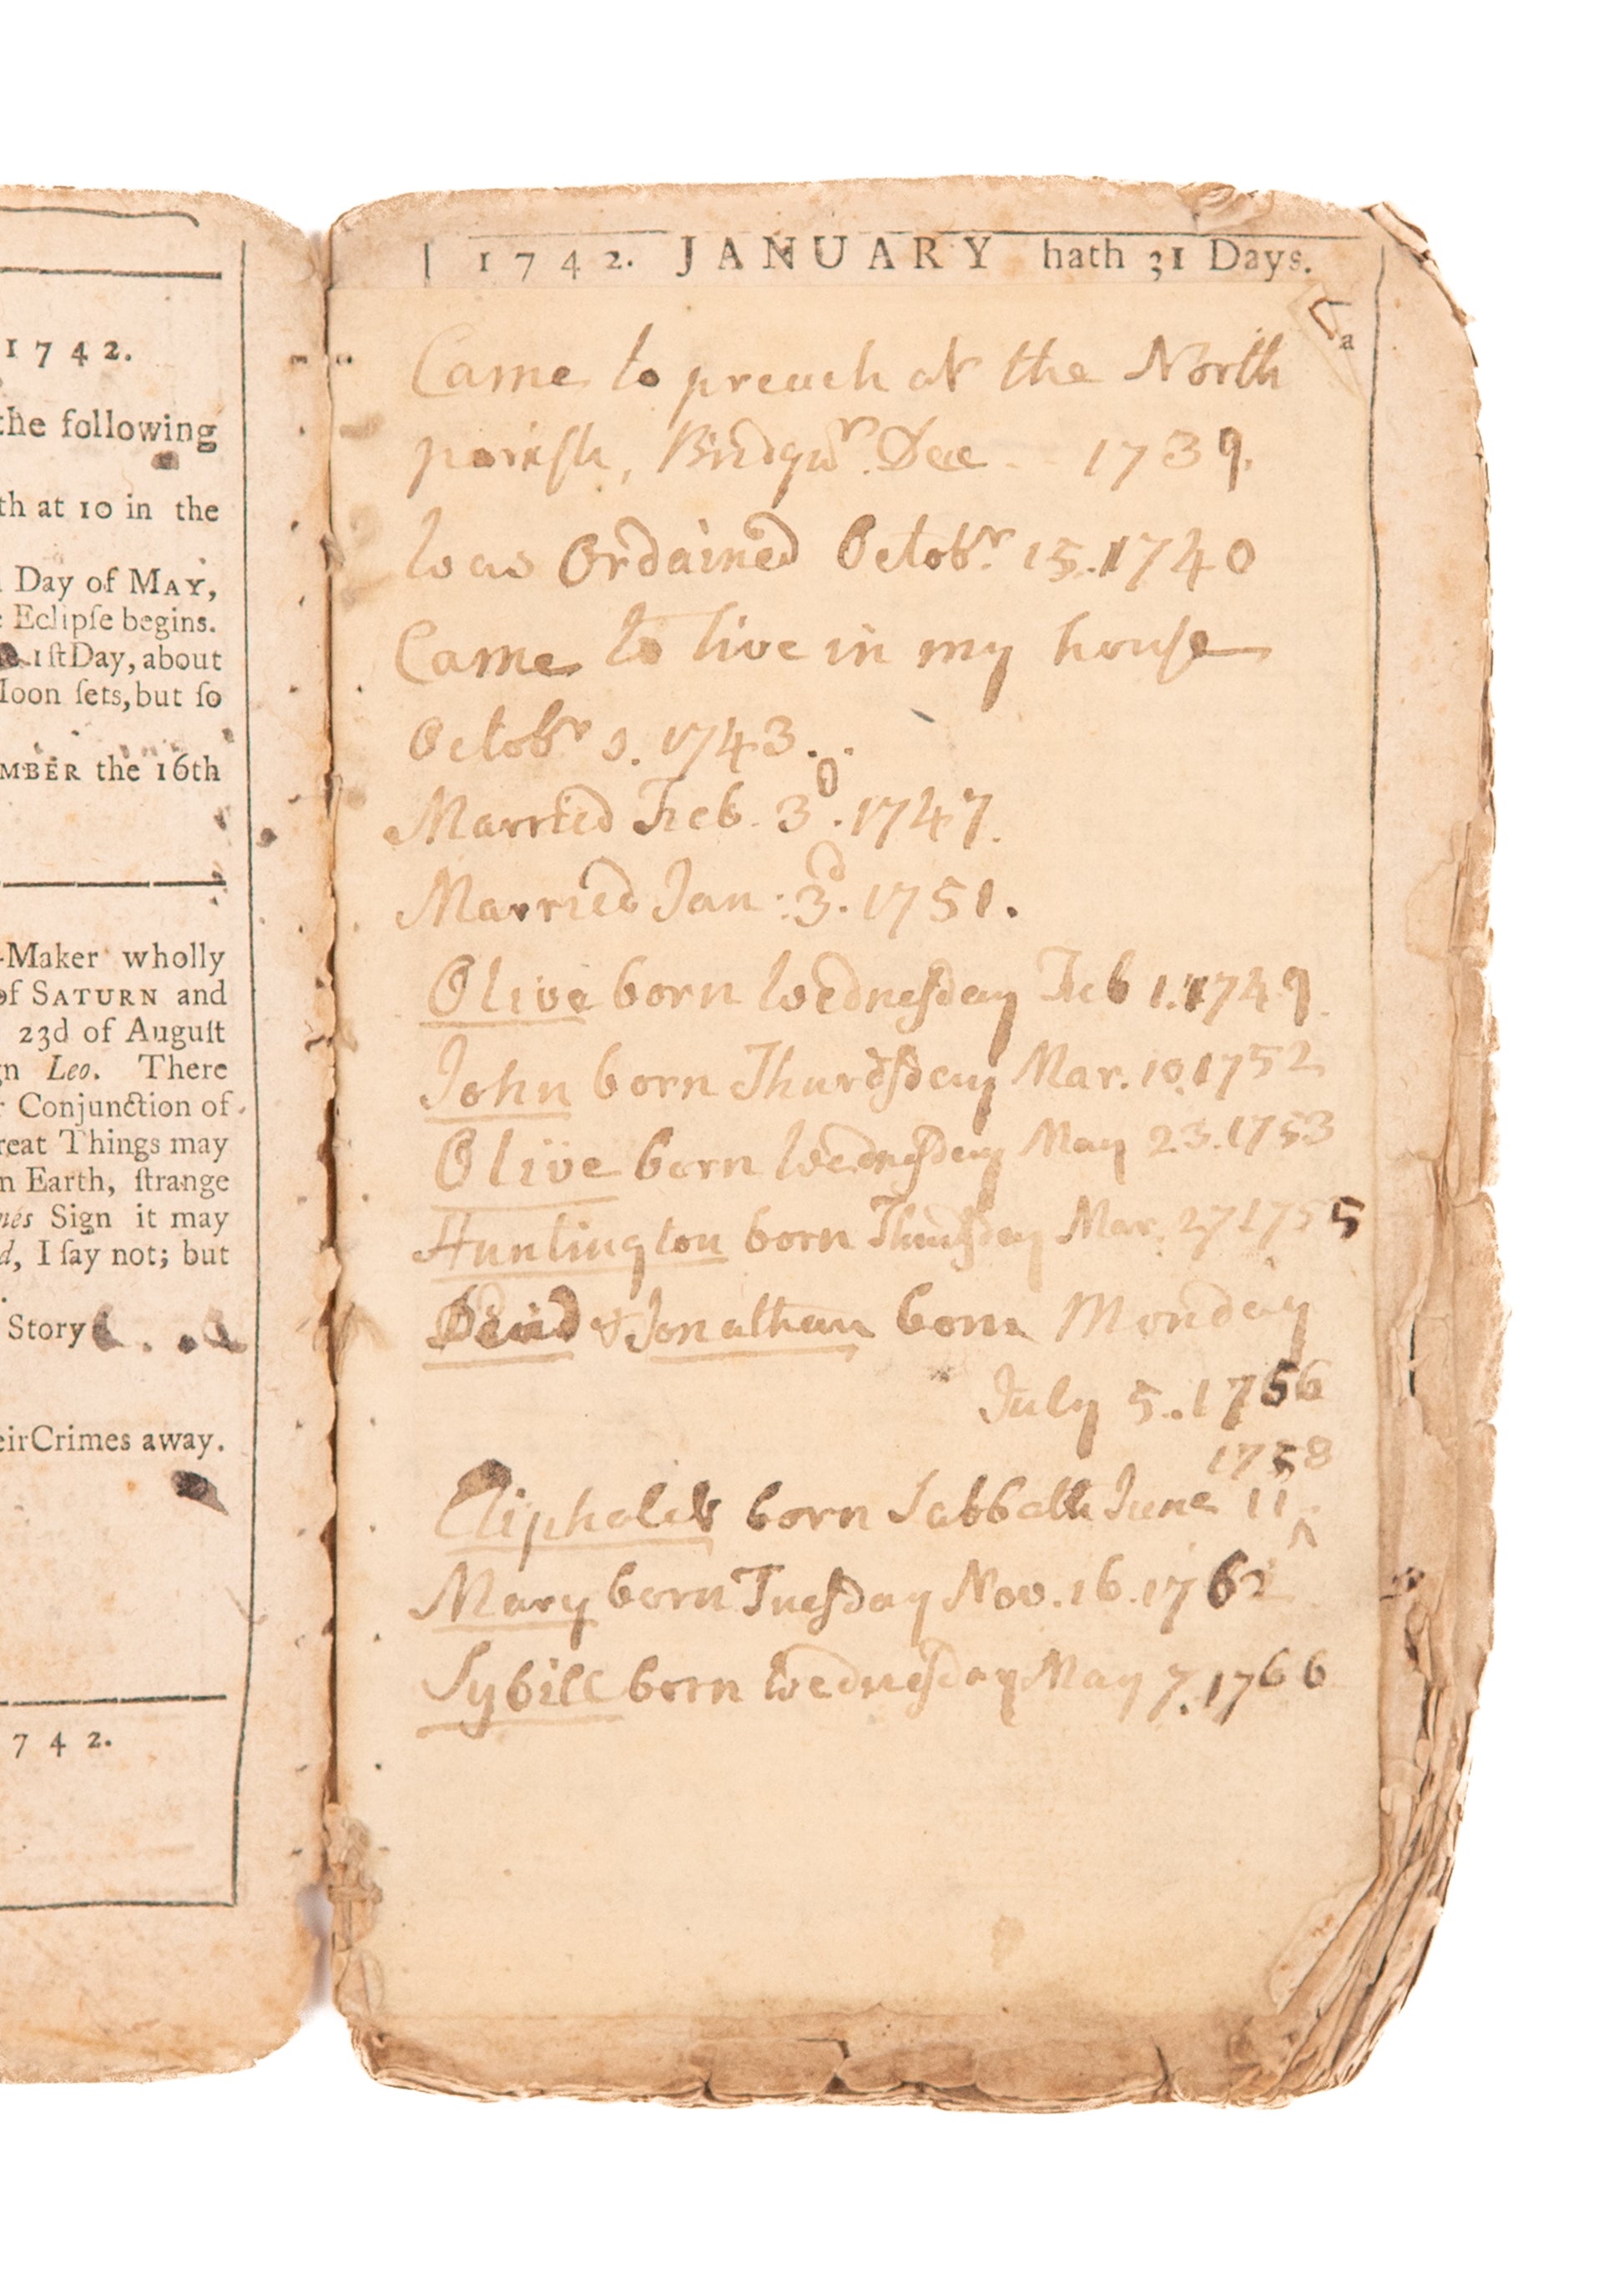 1742.
the following
th at 10 in the
Day of MAY,
Eclipſe begins.
1ſt Day, about
Moon ſets, but ſo
MBER the 16th
-Maker wholly
of SATURN and
23d of Auguſt
gn Leo. There
r Conjunction of
reat Things may
n Earth, ſtrange
Sign it may
d, I ſay not; but
Story
eir Crimes away.
742.
1742. JANUARY hath 31 Days.
Came to preach at the North
pariſh, Bridgwr. Dec 1739.
was Ordained Octobr. 15. 1740
Came to live in my houſe
Octobr 1743.
Married Feb. 3d. 1747.
Married Jan: 3d. 1751.
Olive born Wedneſday Feb 1. 1749.
John born Thurdſday Mar. 10. 1752
Olive born Wedneſday May 23. 1753
Huntington born Thurſday Mar. 27 1755
David & Jonathan born Monday
July 5. 1756
1758
Eliphalet born Sabbath June 11 ^
Mary born Tueſday Nov. 16. 1762
Sybill born Wedneſday May 7. 1766